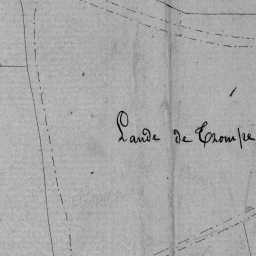 Lande de Trompe